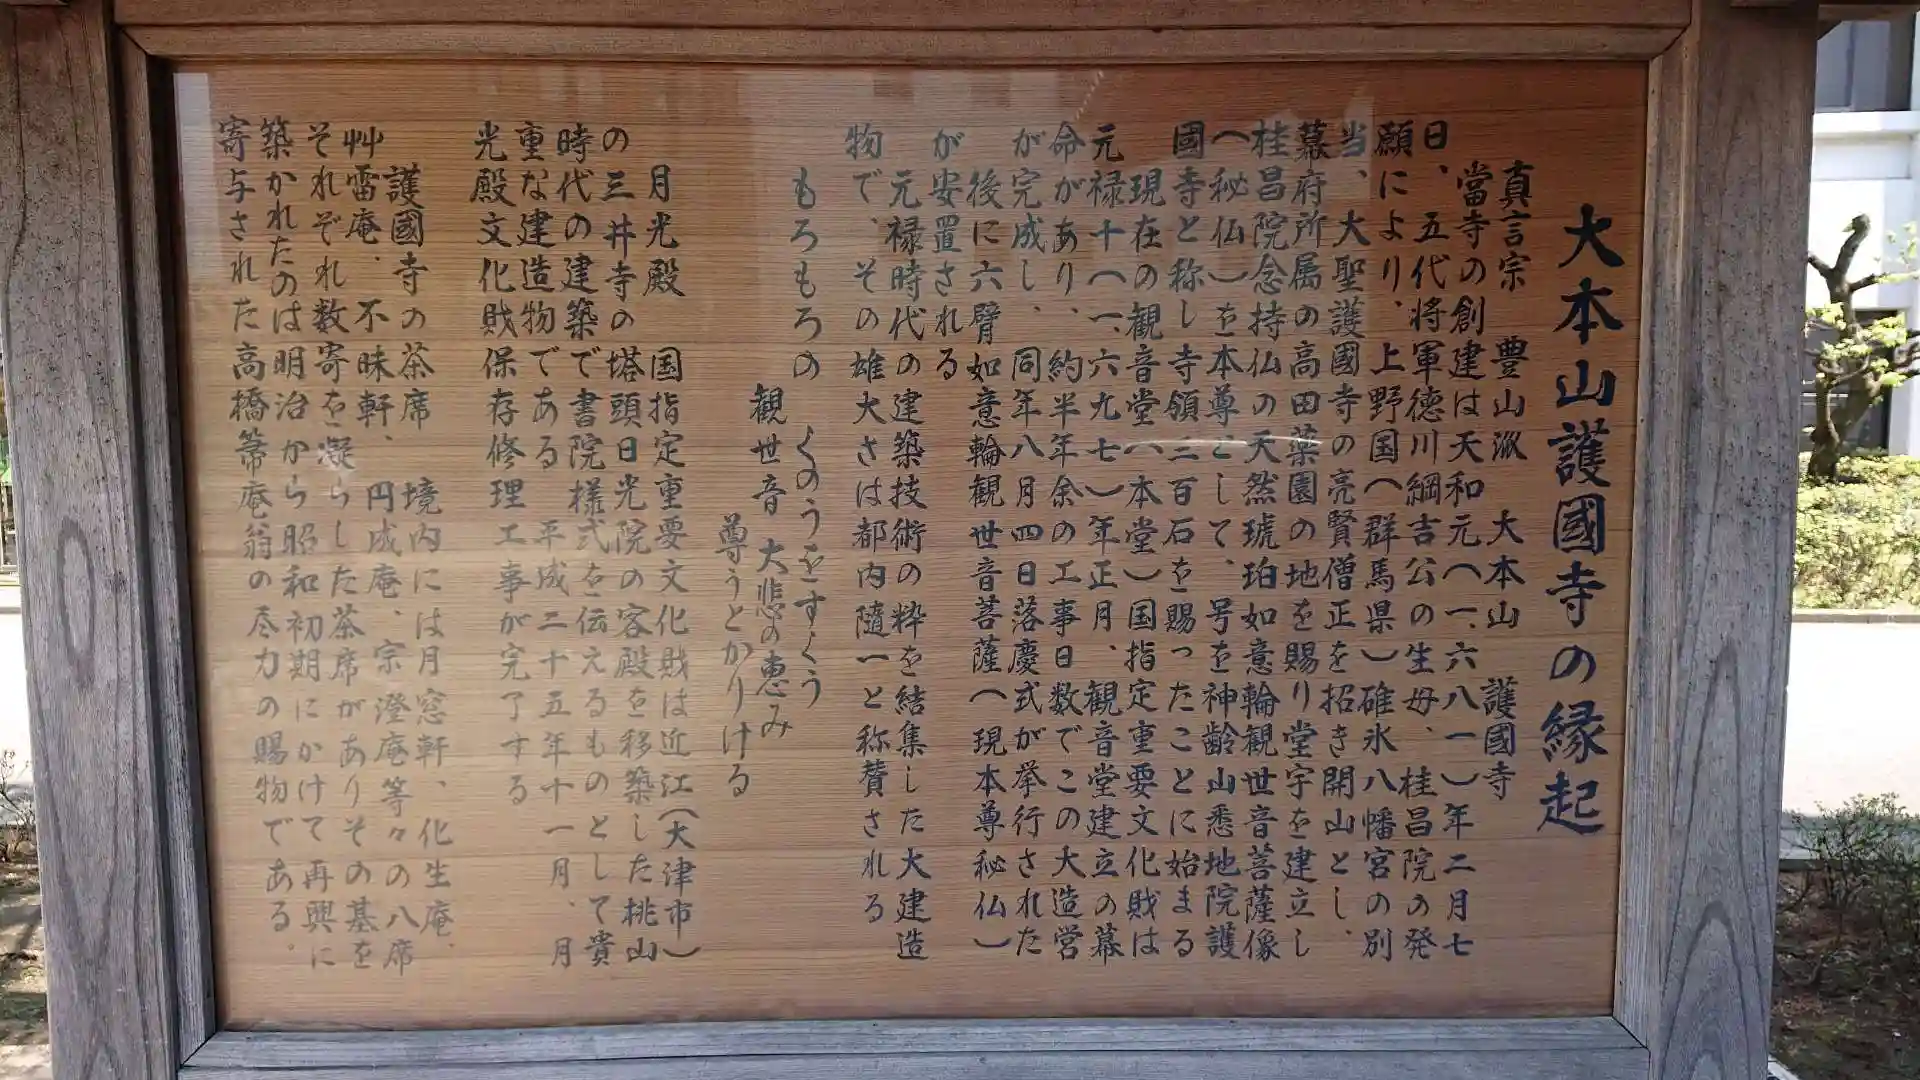 大本山護國寺の縁起
真言宗 豊山派 大本山 護國寺
當寺の創建は天和元(一、六八一)年二月七
日、五代将軍徳川綱吉公の生母、桂昌院の発
願により、上野国(群馬県)碓氷八幡宮の別
当、大聖護國寺の亮賢僧正を招き開山とし、
幕府所属の高田薬園の地を賜り堂宇を建立し
桂昌院念持仏の天然琥珀如意輪観世音菩薩像
(秘仏)を本尊として、号を神齢山悉地院護
國寺と称し寺領三百石を賜ったことに始まる
現在の観音堂(本堂)国指定重要文化財は
元禄十(一、六九七)年正月、観音堂建立の幕
命があり、約半年余の工事日数でこの大造営
が完成し、同年八月四日落慶式が挙行された
後に六臂如意輪観世音菩薩(現本尊秘仏)
が安置される
元禄時代の建築技術の粋を結集した大建造
物で、その雄大さは都内随一と称賛される
もろもろの くのうをすくう
観世音 大悲の恵み
尊うとかりける
月光殿 国指定重要文化財は近江(大津市)
の三井寺の塔頭日光院の客殿を移築した桃山
時代の建築で書院様式を伝えるものとして貴
重な建造物である 平成二十五年十一月、月
光殿文化財保存修理工事が完了する
護國寺の茶席 境内には月窓軒、化生庵、
艸雷庵、不昧軒、円成庵、宗澄庵等々の八席
それぞれ数寄を凝らした茶席がありその基を
築かれたのは明治から昭和初期にかけて再興に
寄与された高橋箒庵翁の尽力の賜物である。